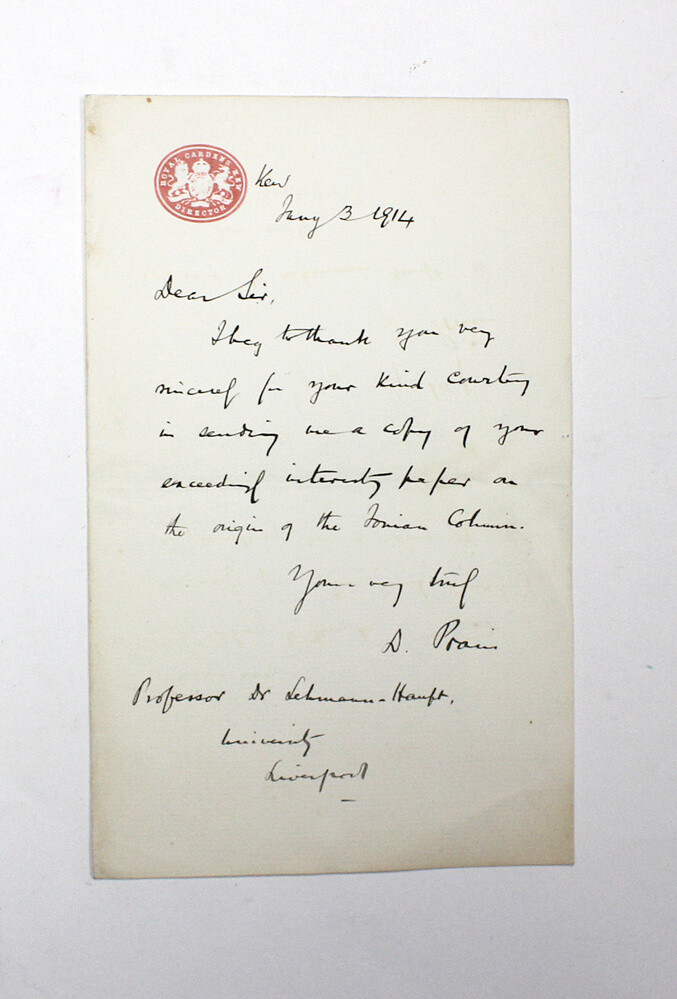 ROYAL GARDENS KEW
DIRECTOR
Kew
Jany 3 1914
Dear Sir,
I beg to thank you very
sincerely for your kind courtesy
in sending me a copy of your
exceedingly interesting paper on
the origin of the Ionian Column.
Yours very truly
D. Prain
Professor Dr Lehmann-Haupt,
University
Liverpool